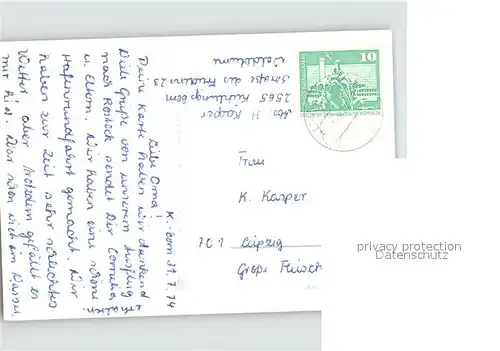 K.'born 31.7.74
Liebe Oma!
Deine Karte haben wir dankend erhalten.
Viele Grüße von unserem Ausflug
nach Rostock sendet Dir Cornelia
u. Eltern. Wir haben eine schöne
Hafenrundfahrt gemacht. Wir
haben zur Zeit sehr schlechtes
Wetter aber trotzdem gefällt es
mir prima. War schon viel im Wasser.
Abs H Kasper
2565 Kühlungsborn
Straße des Friedens 23
10
Frau
K. Kasper
701 Leipzig
Große Fleisch
privacy protection
Datenschutz